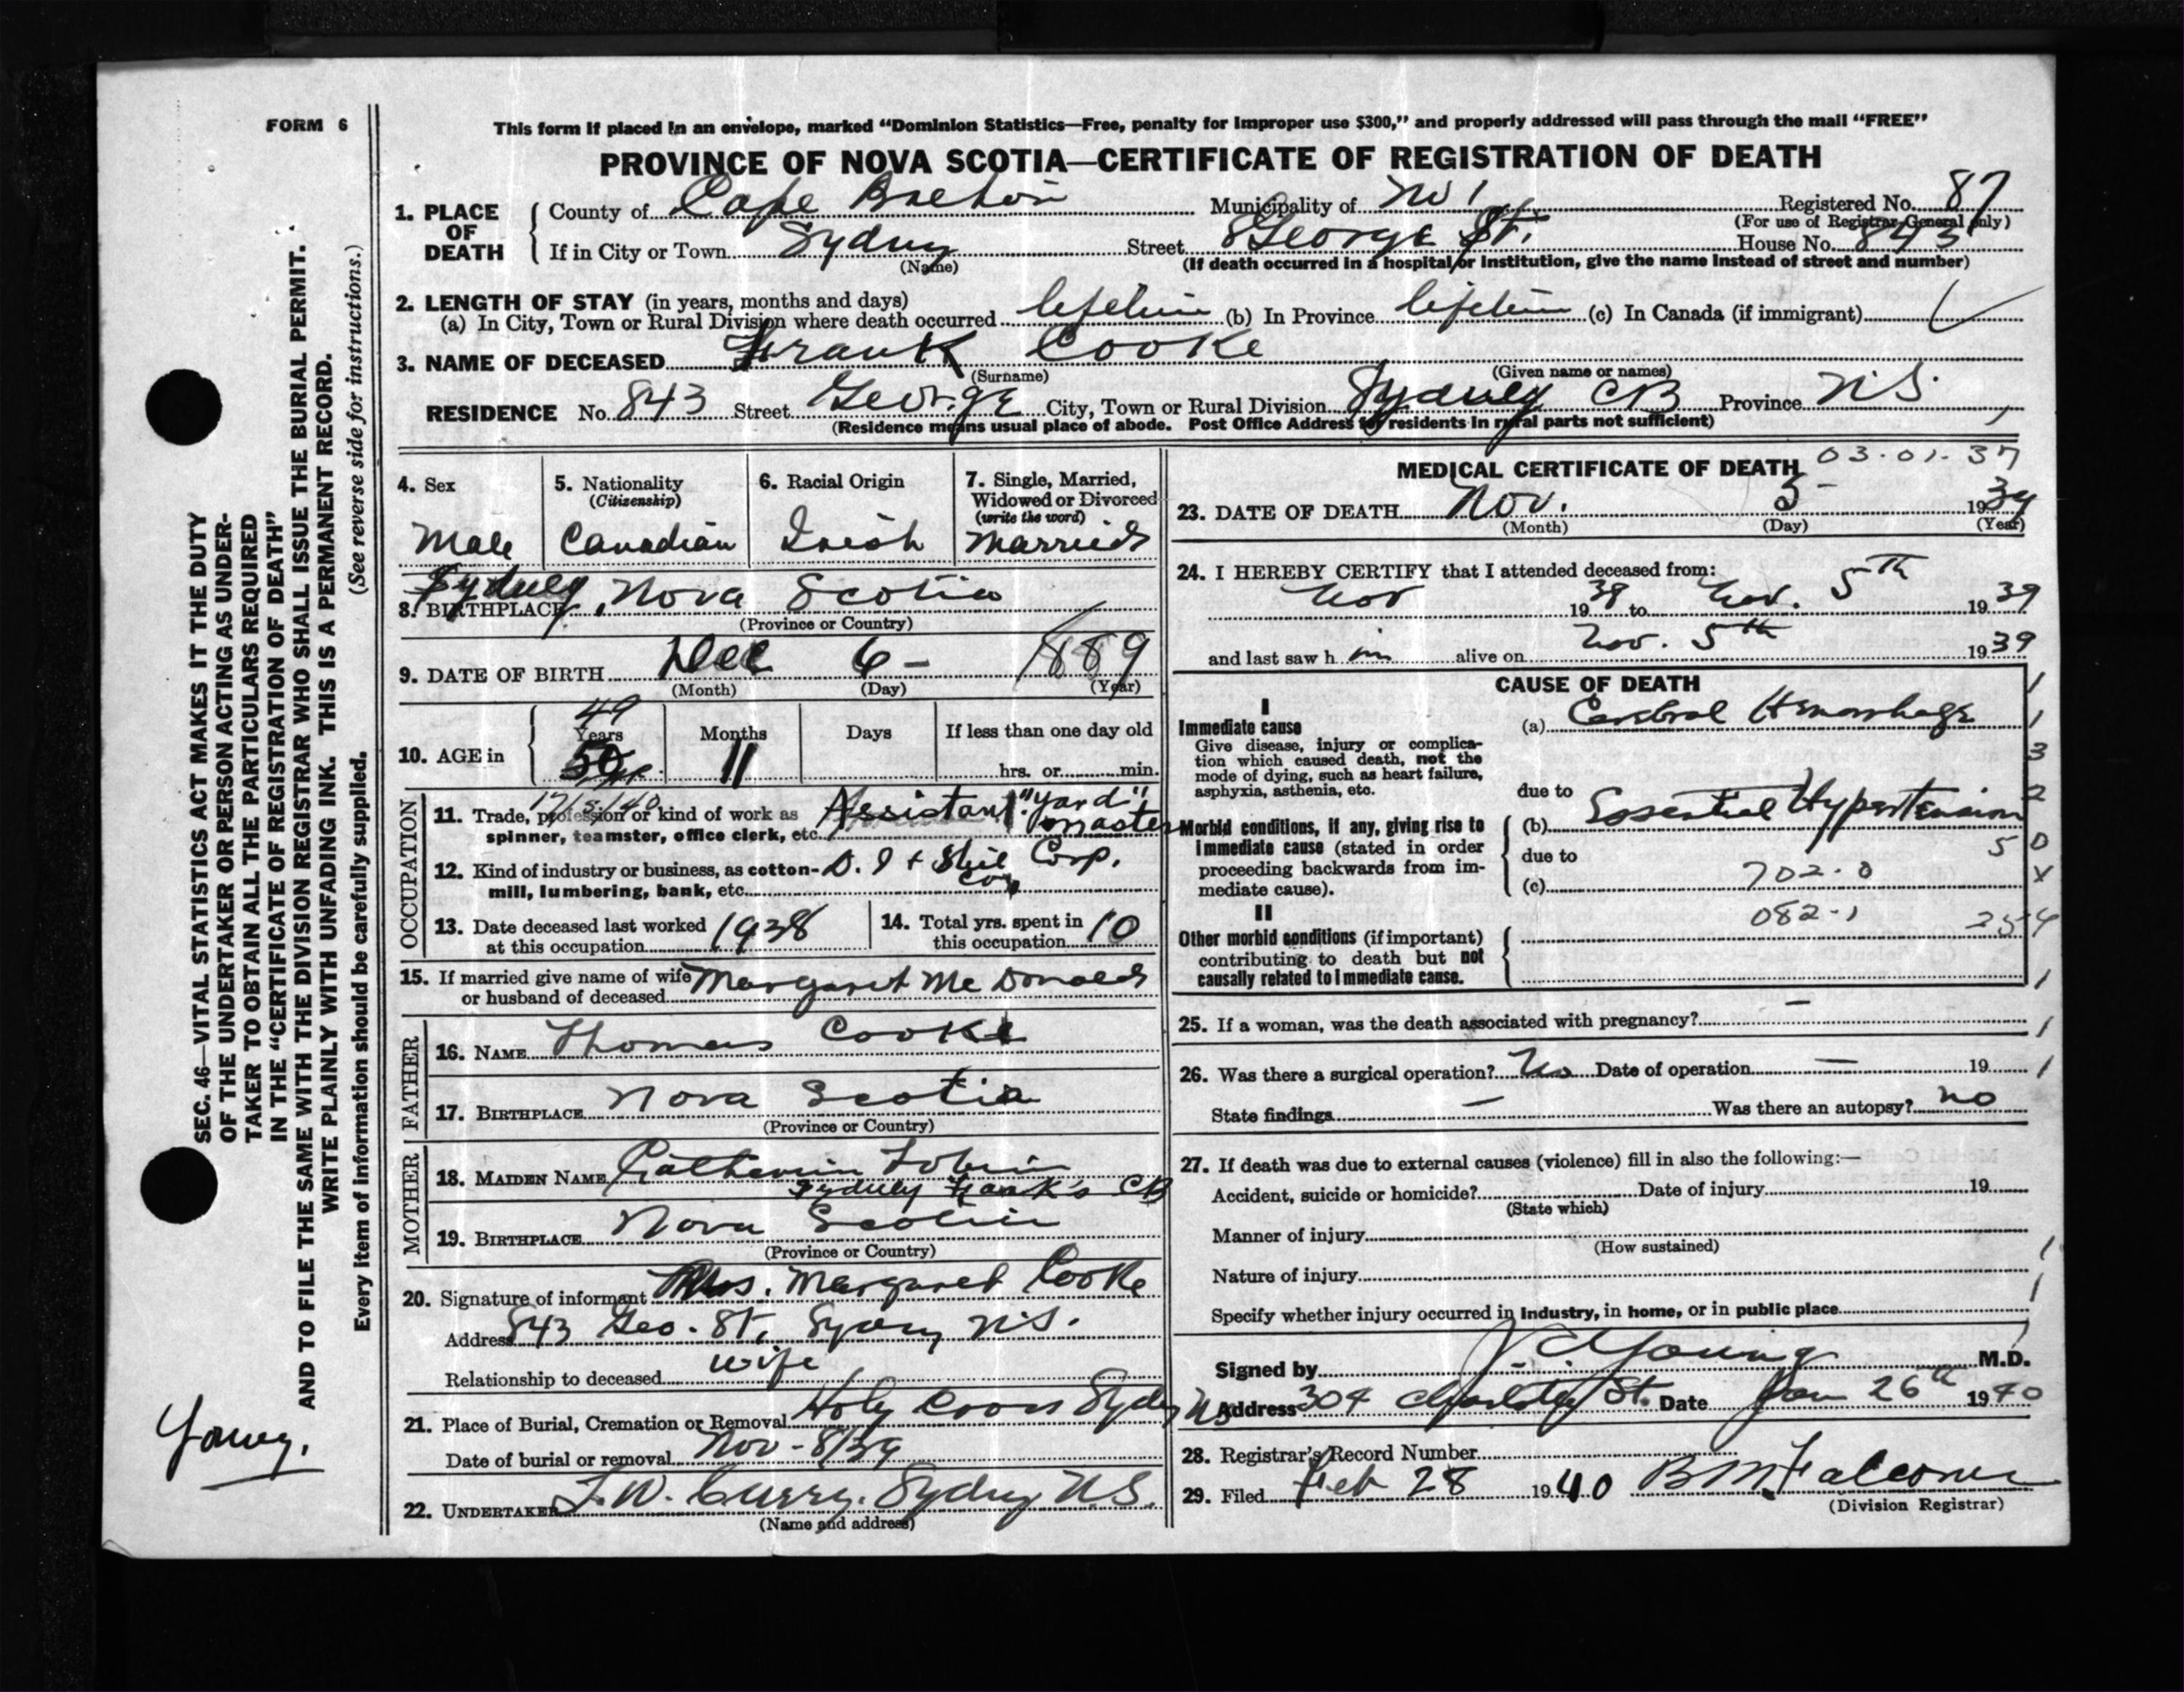 FORM 6
This form if placed in an envelope, marked “Dominion Statistics—Free, penalty for improper use $300,” and properly addressed will pass through the mail “FREE”
PROVINCE OF NOVA SCOTIA—CERTIFICATE OF REGISTRATION OF DEATH
1. PLACE OF DEATH
County of Cape Breton Municipality of No 1 Registered No. 87
(For use of Registrar-General only)
If in City or Town Sydney Street George St. House No. 843
(Name) (If death occurred in a hospital or institution, give the name instead of street and number)
2. LENGTH OF STAY (in years, months and days)
(a) In City, Town or Rural Division where death occurred lifetime (b) In Province lifetime (c) In Canada (if immigrant)
3. NAME OF DECEASED Frank Cooke
(Surname) (Given name or names)
RESIDENCE No. 843 Street George City, Town or Rural Division Sydney CB Province N.S.
(Residence means usual place of abode. Post Office Address for residents in rural parts not sufficient)
4. Sex
Male
5. Nationality
(Citizenship)
Canadian
6. Racial Origin
Irish
7. Single, Married, Widowed or Divorced
(write the word)
Married
Sydney, Nova Scotia
8. BIRTHPLACE
(Province or Country)
9. DATE OF BIRTH Dec 6 - 1889
(Month) (Day) (Year)
10. AGE in
49
Years Months Days If less than one day old
50 11 hrs. or min.
OCCUPATION
17/5/40
11. Trade, profession or kind of work as Assistant "Yard"
spinner, teamster, office clerk, etc. master
12. Kind of industry or business, as cotton- D. I + Steel Corp.
mill, lumbering, bank, etc.
13. Date deceased last worked
at this occupation 1938
14. Total yrs. spent in
this occupation 10
15. If married give name of wife
or husband of deceased Margaret Mc Donald
FATHER
16. NAME Thomas Cooke
17. BIRTHPLACE Nova Scotia
(Province or Country)
MOTHER
18. MAIDEN NAME Catherine Tobin
Sydney CB
19. BIRTHPLACE Nova Scotia
(Province or Country)
20. Signature of informant Mrs. Margaret Cooke
Address 843 Geo. St, Sydney N.S.
Relationship to deceased wife
21. Place of Burial, Cremation or Removal Holy Cross Sydney NS
Date of burial or removal Nov - 8/39
22. UNDERTAKER F.W. Curry, Sydney N.S.
(Name and address)
MEDICAL CERTIFICATE OF DEATH 03-01-37
23. DATE OF DEATH Nov. 5 - 1939
(Month) (Day) (Year)
24. I HEREBY CERTIFY that I attended deceased from:
Nov 1939 to Nov. 5th 1939
and last saw h im alive on Nov. 5th 1939
CAUSE OF DEATH
I
Immediate cause
Give disease, injury or complication which caused death, not the mode of dying, such as heart failure, asphyxia, asthenia, etc.
(a) Cerebral Hemorrhage
due to
Morbid conditions, if any, giving rise to immediate cause (stated in order proceeding backwards from immediate cause).
(b) Essential Hypertension
due to 5
(c) 702-0
II 082-1 254
Other morbid conditions (if important) contributing to death but not causally related to immediate cause.
1
1
3
2
0
X
1
25. If a woman, was the death associated with pregnancy? - 1
26. Was there a surgical operation? No Date of operation — 19 1
State findings — Was there an autopsy? no
27. If death was due to external causes (violence) fill in also the following:—
Accident, suicide or homicide? Date of injury 19
(State which)
Manner of injury
(How sustained) 1
Nature of injury 1
Specify whether injury occurred in industry, in home, or in public place
Signed by Young M.D.
Address 304 Charlotte St. Date Jan 26th 1940
28. Registrar's Record Number
29. Filed Feb 28 1940 B M Falconer
(Division Registrar)
SEC. 46—VITAL STATISTICS ACT MAKES IT THE DUTY
OF THE UNDERTAKER OR PERSON ACTING AS UNDER-
TAKER TO OBTAIN ALL THE PARTICULARS REQUIRED
IN THE “CERTIFICATE OF REGISTRATION OF DEATH”
AND TO FILE THE SAME WITH THE DIVISION REGISTRAR WHO SHALL ISSUE THE BURIAL PERMIT.
WRITE PLAINLY WITH UNFADING INK. THIS IS A PERMANENT RECORD.
Every item of information should be carefully supplied. (See reverse side for instructions.)
Young.